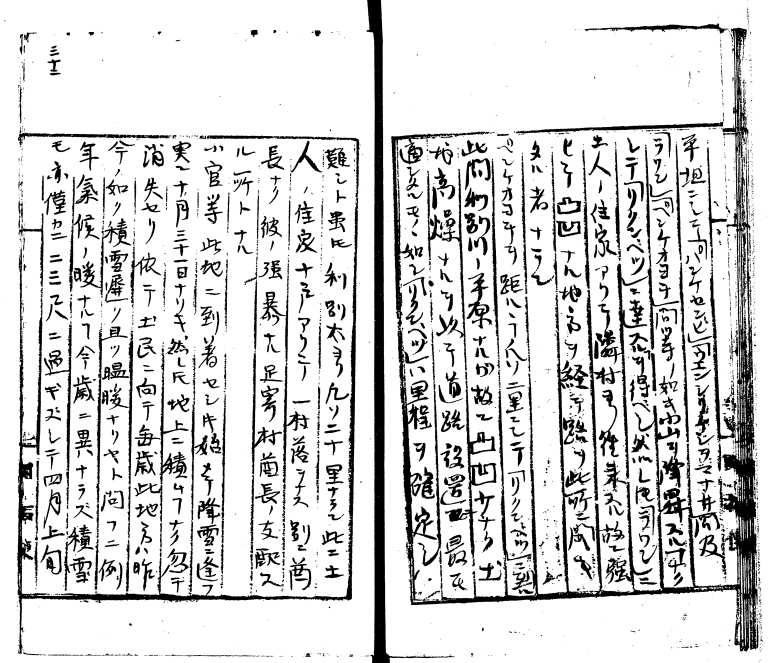 平坦ニシテ「パンケセンビリ」「ウエンシリ
ラワン」「ペンケオヨチ」間等ノ如キ小山ヲ降昇スルコナク
シテ「リクンベツ」ニ達スルヲ得ベシ然レ𪜈「ラワン」ニ
土人ノ住家アリテ隣村ヨリ往来スル故ニ強
ヒテ凸凹ナル地方ヲ経テ路ヲ此所ニ開キ
タル者ナラン
ペンケオヨチヲ距ルコ凡ソ二里ニシテ「リクンベツ」ニ
此間利別川ノ平原ナルカ故ニ凸凹少ナク土
地高燥ナルヲ以テ道路設置最モ
適シタルモノヽ如シ「リクンベツ」ハ里程ヲ確定シ
難シト雖𪜈利別太ヨリ凡ソ二十里ナラン此ニ土
人ノ住家十戸アリテ一村落ヲナス別ニ酋
長ナク彼ノ強暴ナル足寄村酋長ノ支配ス
ル所トナル
小官等此地ニ到着セシ𪜈始メテ降雪ニ逢フ
実ニ十月三十一日ナリキ然レ𪜈地上ニ積ムコナク忽チ
消失セリ依テ土民ニ向テ毎歳此地方ハ昨
今ノ如ク積雪遅ク且ツ温暖ナリヤト問フニ例
年気候ノ暖ナルコ今歳ニ異ナラズ積雪
モ亦僅カニ二三尺ニ過ギズシテ四月上旬
三十二